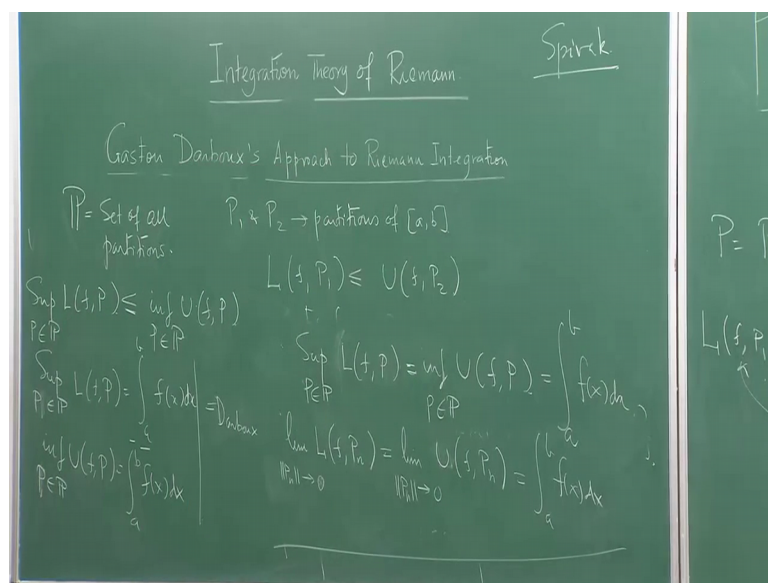 Spivak
Integration Theory of Riemann
Gaston Darboux's Approach to Riemann Integration
ℙ = Set of all partitions.
P₁ & P₂ → partitions of [a,b]
L(f,P₁) ≤ U(f,P₂)
Sup_{P∈ℙ} L(f,P) ≤ inf_{P∈ℙ} U(f,P)
Sup_{P∈ℙ} L(f,P) = ∫_a^b f(x)dx
inf_{P∈ℙ} U(f,P) = ∫_a^b f(x)dx
= Darboux
Sup_{P∈ℙ} L(f,P) = inf_{P∈ℙ} U(f,P) = ∫_a^b f(x)dx
lim_{||Pₙ||→0} L(f,Pₙ) = lim_{||Pₙ||→0} U(f,Pₙ) = ∫_a^b f(x)dx
P = P
L(f,P₁